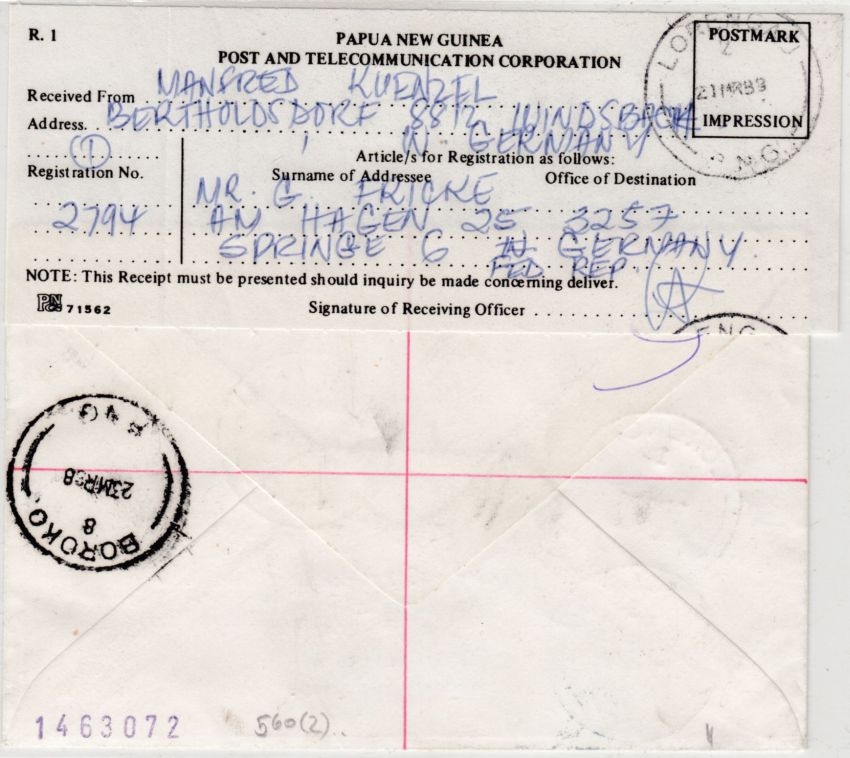 R. 1
PAPUA NEW GUINEA
POST AND TELECOMMUNICATION CORPORATION
POSTMARK
IMPRESSION
LORENGAU
2
21MR88
P.N.G.
Received From MANFRED KUENZEL
Address. BERTHOLDSDORF 8812 WINDSBACH
W GERMANY
(1)
Article/s for Registration as follows:
Registration No.
Surname of Addressee
Office of Destination
2794
MR. G. FRICKE
AM HAGEN 25 3257
SPRINGE 6 W GERMANY
FED REP.
NOTE: This Receipt must be presented should inquiry be made concerning deliver.
71562
Signature of Receiving Officer
ENG
PNG
23MR88
8
BOROKO
1463072
560(2)